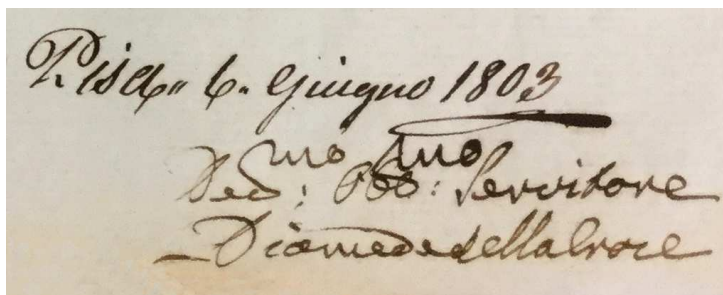 Pisa 6. Giugno 1803
Dev:mo Obb:mo Servitore
Diomede della Croce